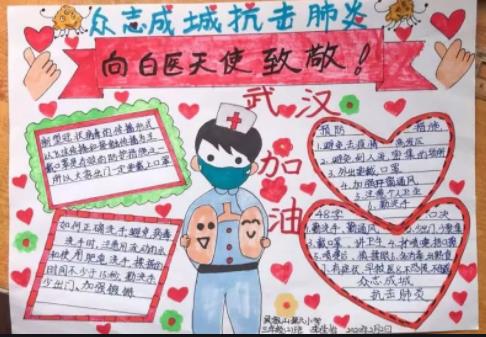 众志成城抗击肺炎
向白医天使致敬！
武汉
加
油
新型冠状病毒的传播形式
以飞沫传播和接触传播为主
戴口罩是有效的防护措施之一
所以大家出门一定要戴上口罩
如何正确洗手避免病毒
洗手时,注意用流动的水
和使用肥皂洗手,揉搓的
时间不少于15秒,勤洗手
少出门、加强锻炼
预防 措施
1.避免去疫情 高发区
2.避免到人流密集的场所
3.外出要戴口罩
4.加强开窗通风
5.注意个人卫生
6.勤洗手
48字 口决
1.勤洗手,勤通风
3.戴口罩 讲卫生 4.打喷嚏捂口鼻
众志成城
抗击肺炎
三年级(2)班
2020年2月2日